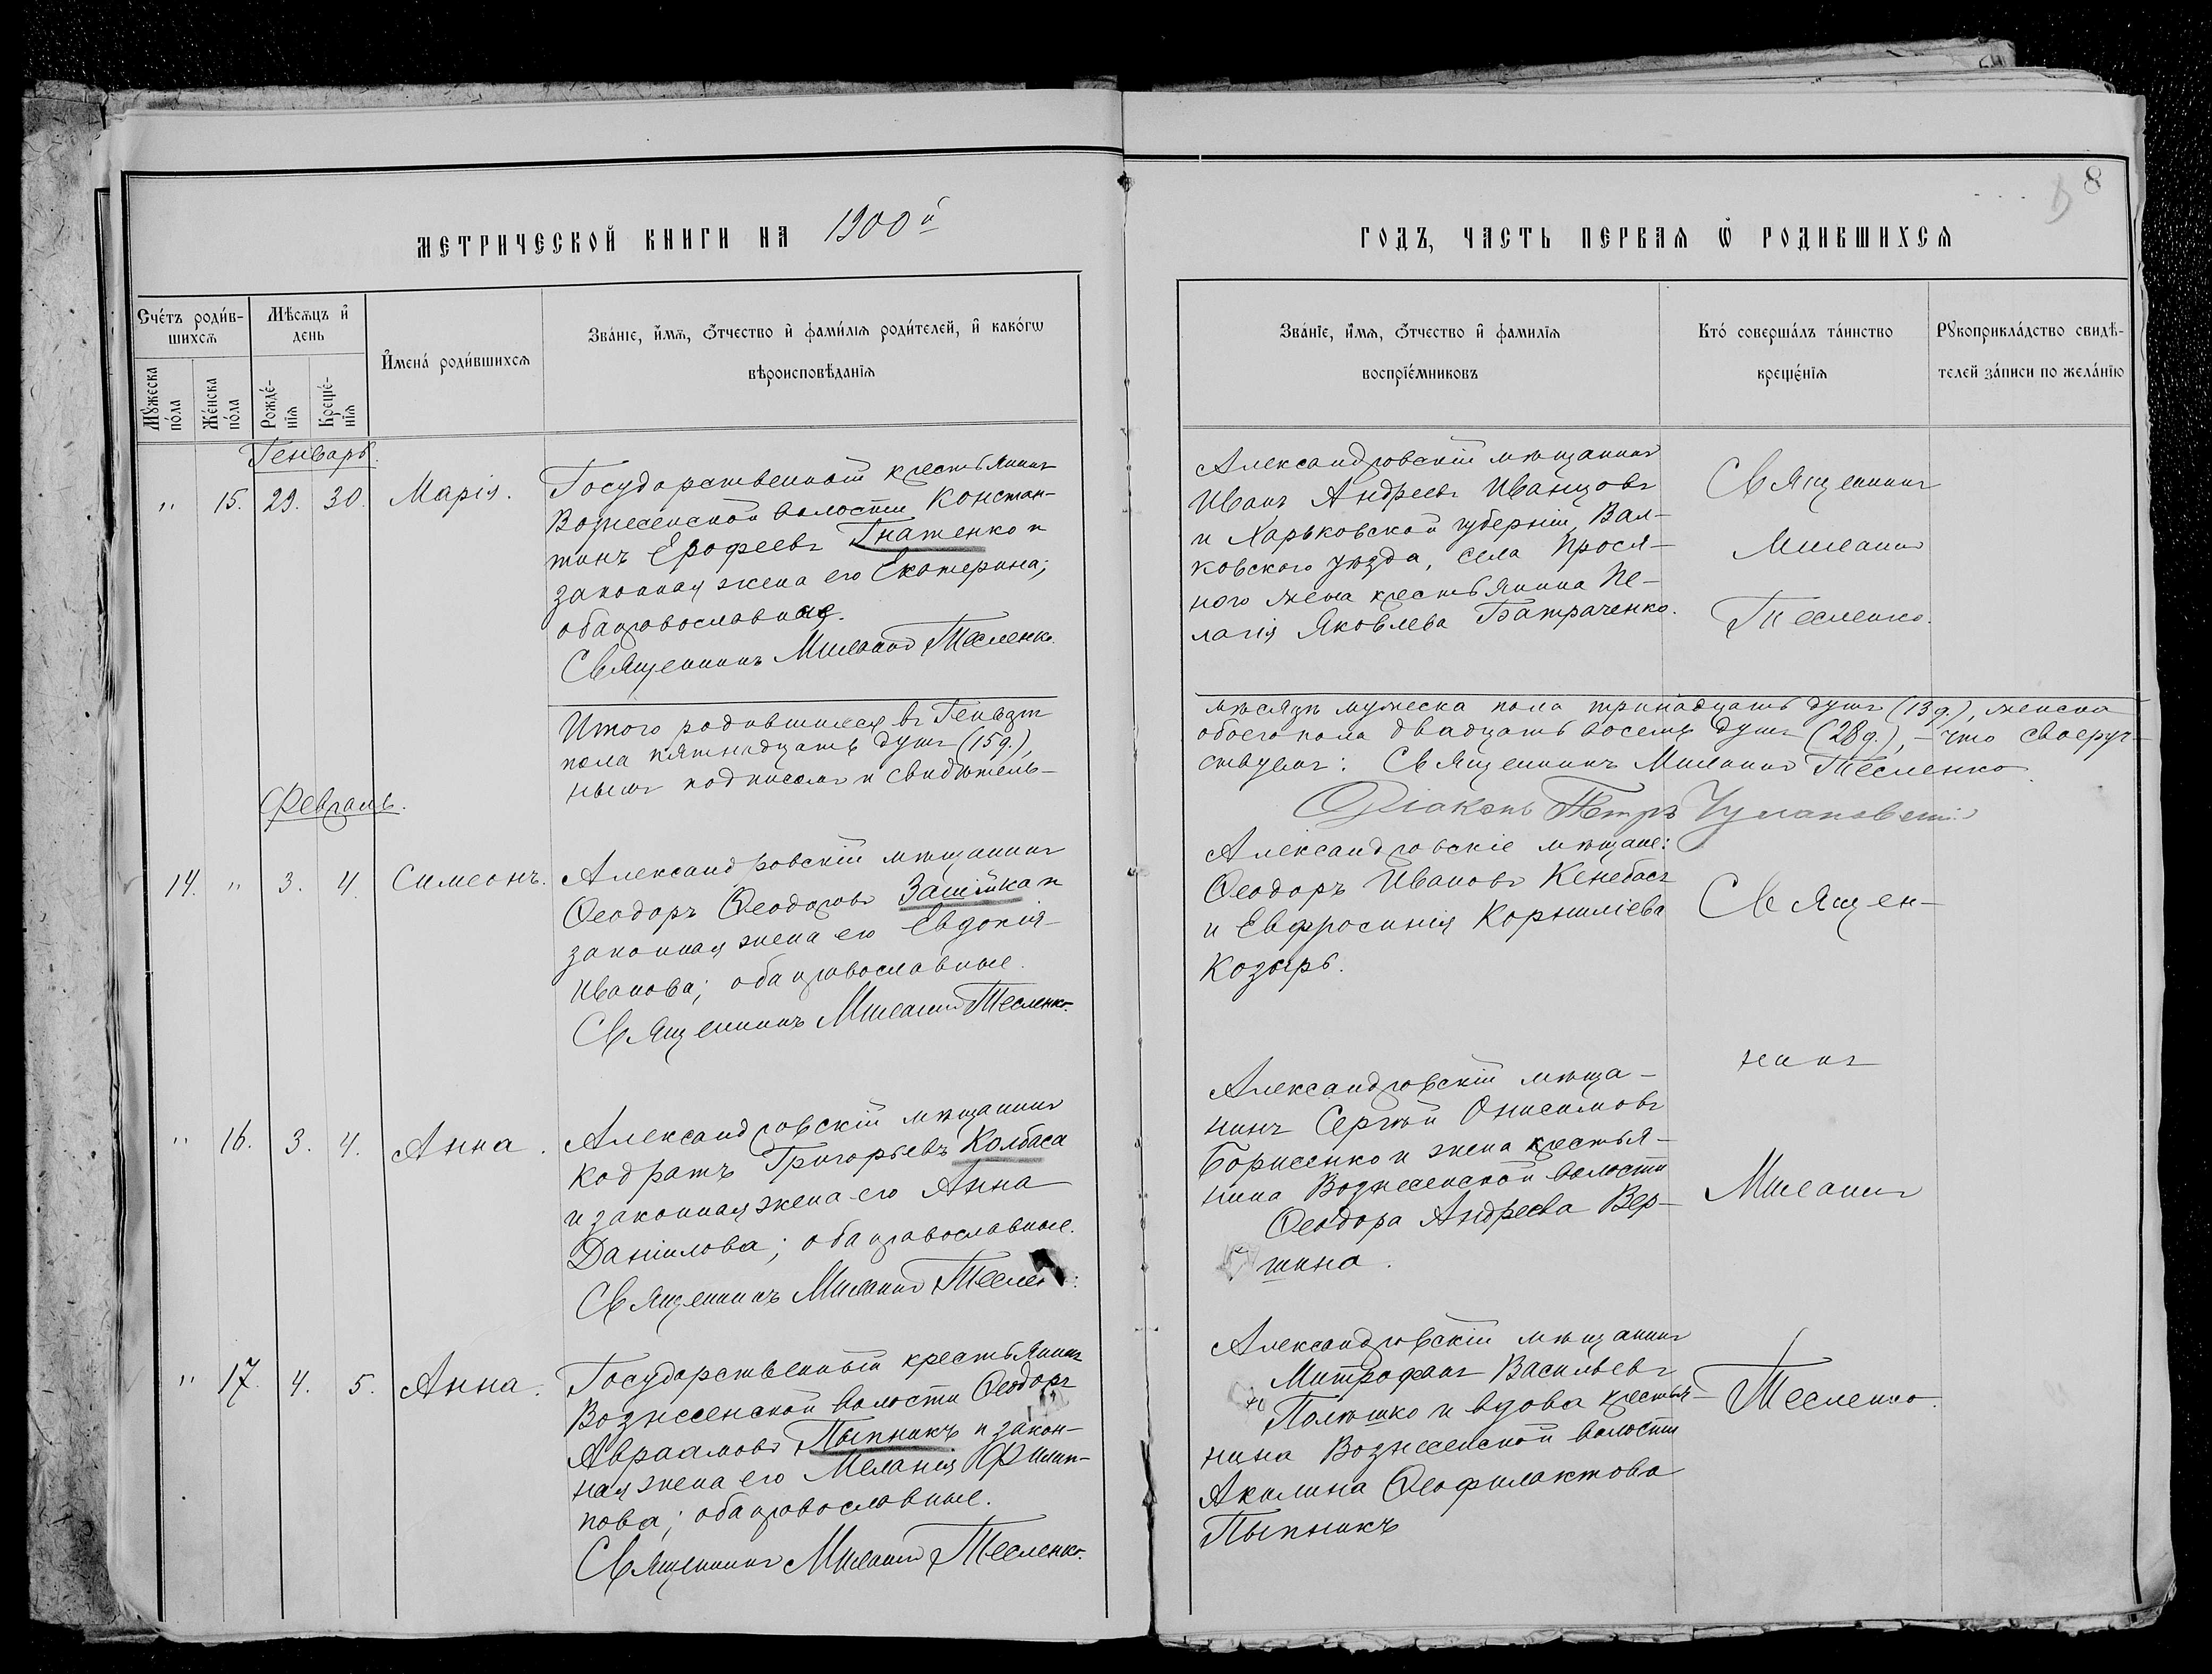 8
МЕТРИЧЕСКОЙ КНИГИ НА 1900й
ГОДЪ, ЧАСТЬ ПЕРВАЯ Ѿ РОДИВШИХСЯ
Счётъ роди́в-
шихсѧ
Мꙋ́жеска по́ла
Же́нска по́ла
Мѣ́сѧцъ и҆ день
Рожде́-нїѧ
Креще́-нїѧ
И҆мена̀ роди́вшихсѧ
Зва́нїе, и҆́мѧ, о҆́тчество и҆ фами́лїѧ роди́телей, и҆ како́гѡ
вѣроисповѣ́данїѧ
Зва́нїе, и҆́мѧ, о҆́тчество и҆ фами́лїѧ
воспрїе́мниковъ
Кто̀ соверша́лъ та́инство
креще́нїѧ
Рꙋкоприкла́дство свидѣ́-
телей за́писи по жела́нїю
Генварь.
" 15. 29. 30. Марія.
Государственный крестьянинъ
Вознесенской волости Констан-
тинъ Ерофеевъ Гнатенко и
законная жена его Екатерина;
оба православные.
Священникъ Милетий Тесленко.
Александровскій мѣщанинъ
Иванъ Андреевъ Иванцовъ
и Харьковской губерніи, Вал-
ковского уѣзда, села Прося-
ного жена крестьянина Пе-
лагія Яковлева Батраченко.
Священникъ
Тесленко.
Итого родившихся въ Генварѣ
пола пятнадцать душъ (15 д.),
нымъ подписомъ и свидѣтель-
мѣсяцѣ мужеска пола тринадцать душъ (13 д.), женска
обоего пола двадцать восемь душъ (28 д.), – что своеруч-
ствуемъ: Священникъ Тесленко
Діаконъ Петръ
Февраль.
14. " 3. 4. Симеонъ.
Александровскій мѣщанинъ
Ѳеодоръ Ѳеодоровъ и
законная жена его Евдокія
Иванова; оба православные.
Священникъ Тесленко.
Александровскіе мѣщане:
Ѳеодоръ Ивановъ Кенебасъ
и Евфросинія Корниліева
Козырь.
Священ-
" 16. 3. 4. Анна.
Александровскій мѣщанинъ
Кодратъ Григорьевъ Колбаса
и законная жена его Анна
Даніилова; оба православные.
Священникъ
Александровскій мѣща-
нинъ Сергѣй Онисимовъ
Борисенко и жена крестья-
нина Вознесенской волости
Ѳеодора Андреева Вер-
шина.
никъ
" 17. 4. 5. Анна.
Государственный крестьянинъ
Вознесенской волости Ѳеодоръ
Авраамовъ Пыпникъ и закон-
ная жена его Меланія Филип-
пова; оба православные.
Священникъ Тесленко.
Александровскій мѣщанинъ
Митрофанъ Васильевъ
Полѣшко и вдова крестья-
нина Вознесенской волости
Акилина Ѳеофилактова
Пыпникъ
Тесленко.